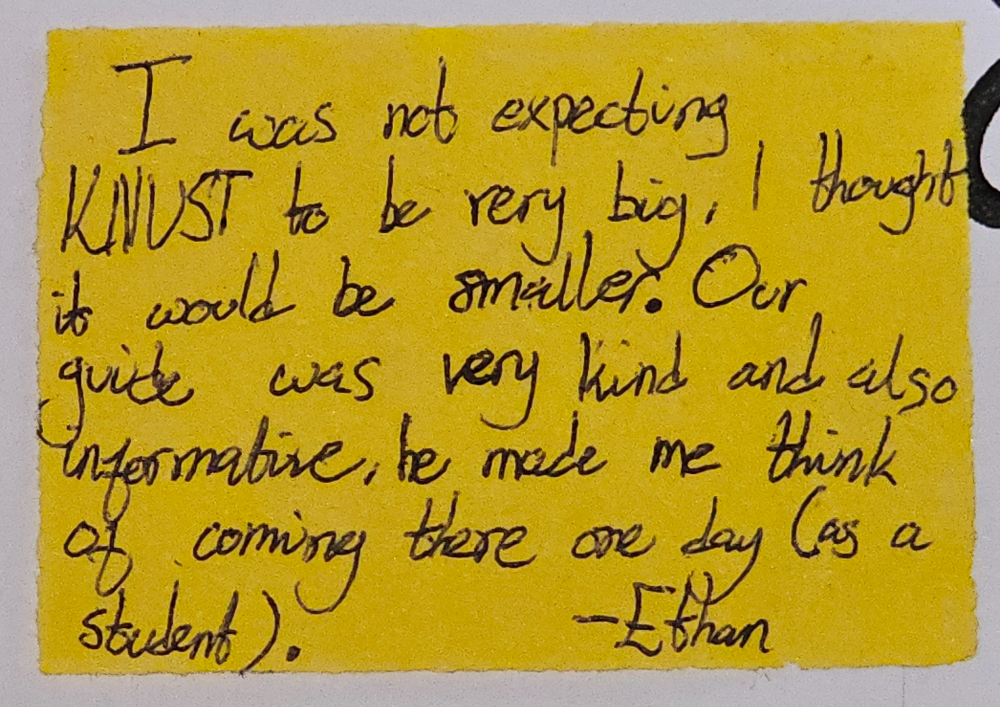 I was not expecting
KNUST to be very big, I thought
it would be smaller. Our
guide was very kind and also
informative, he made me think
of coming there one day (as a
student). -Ethan